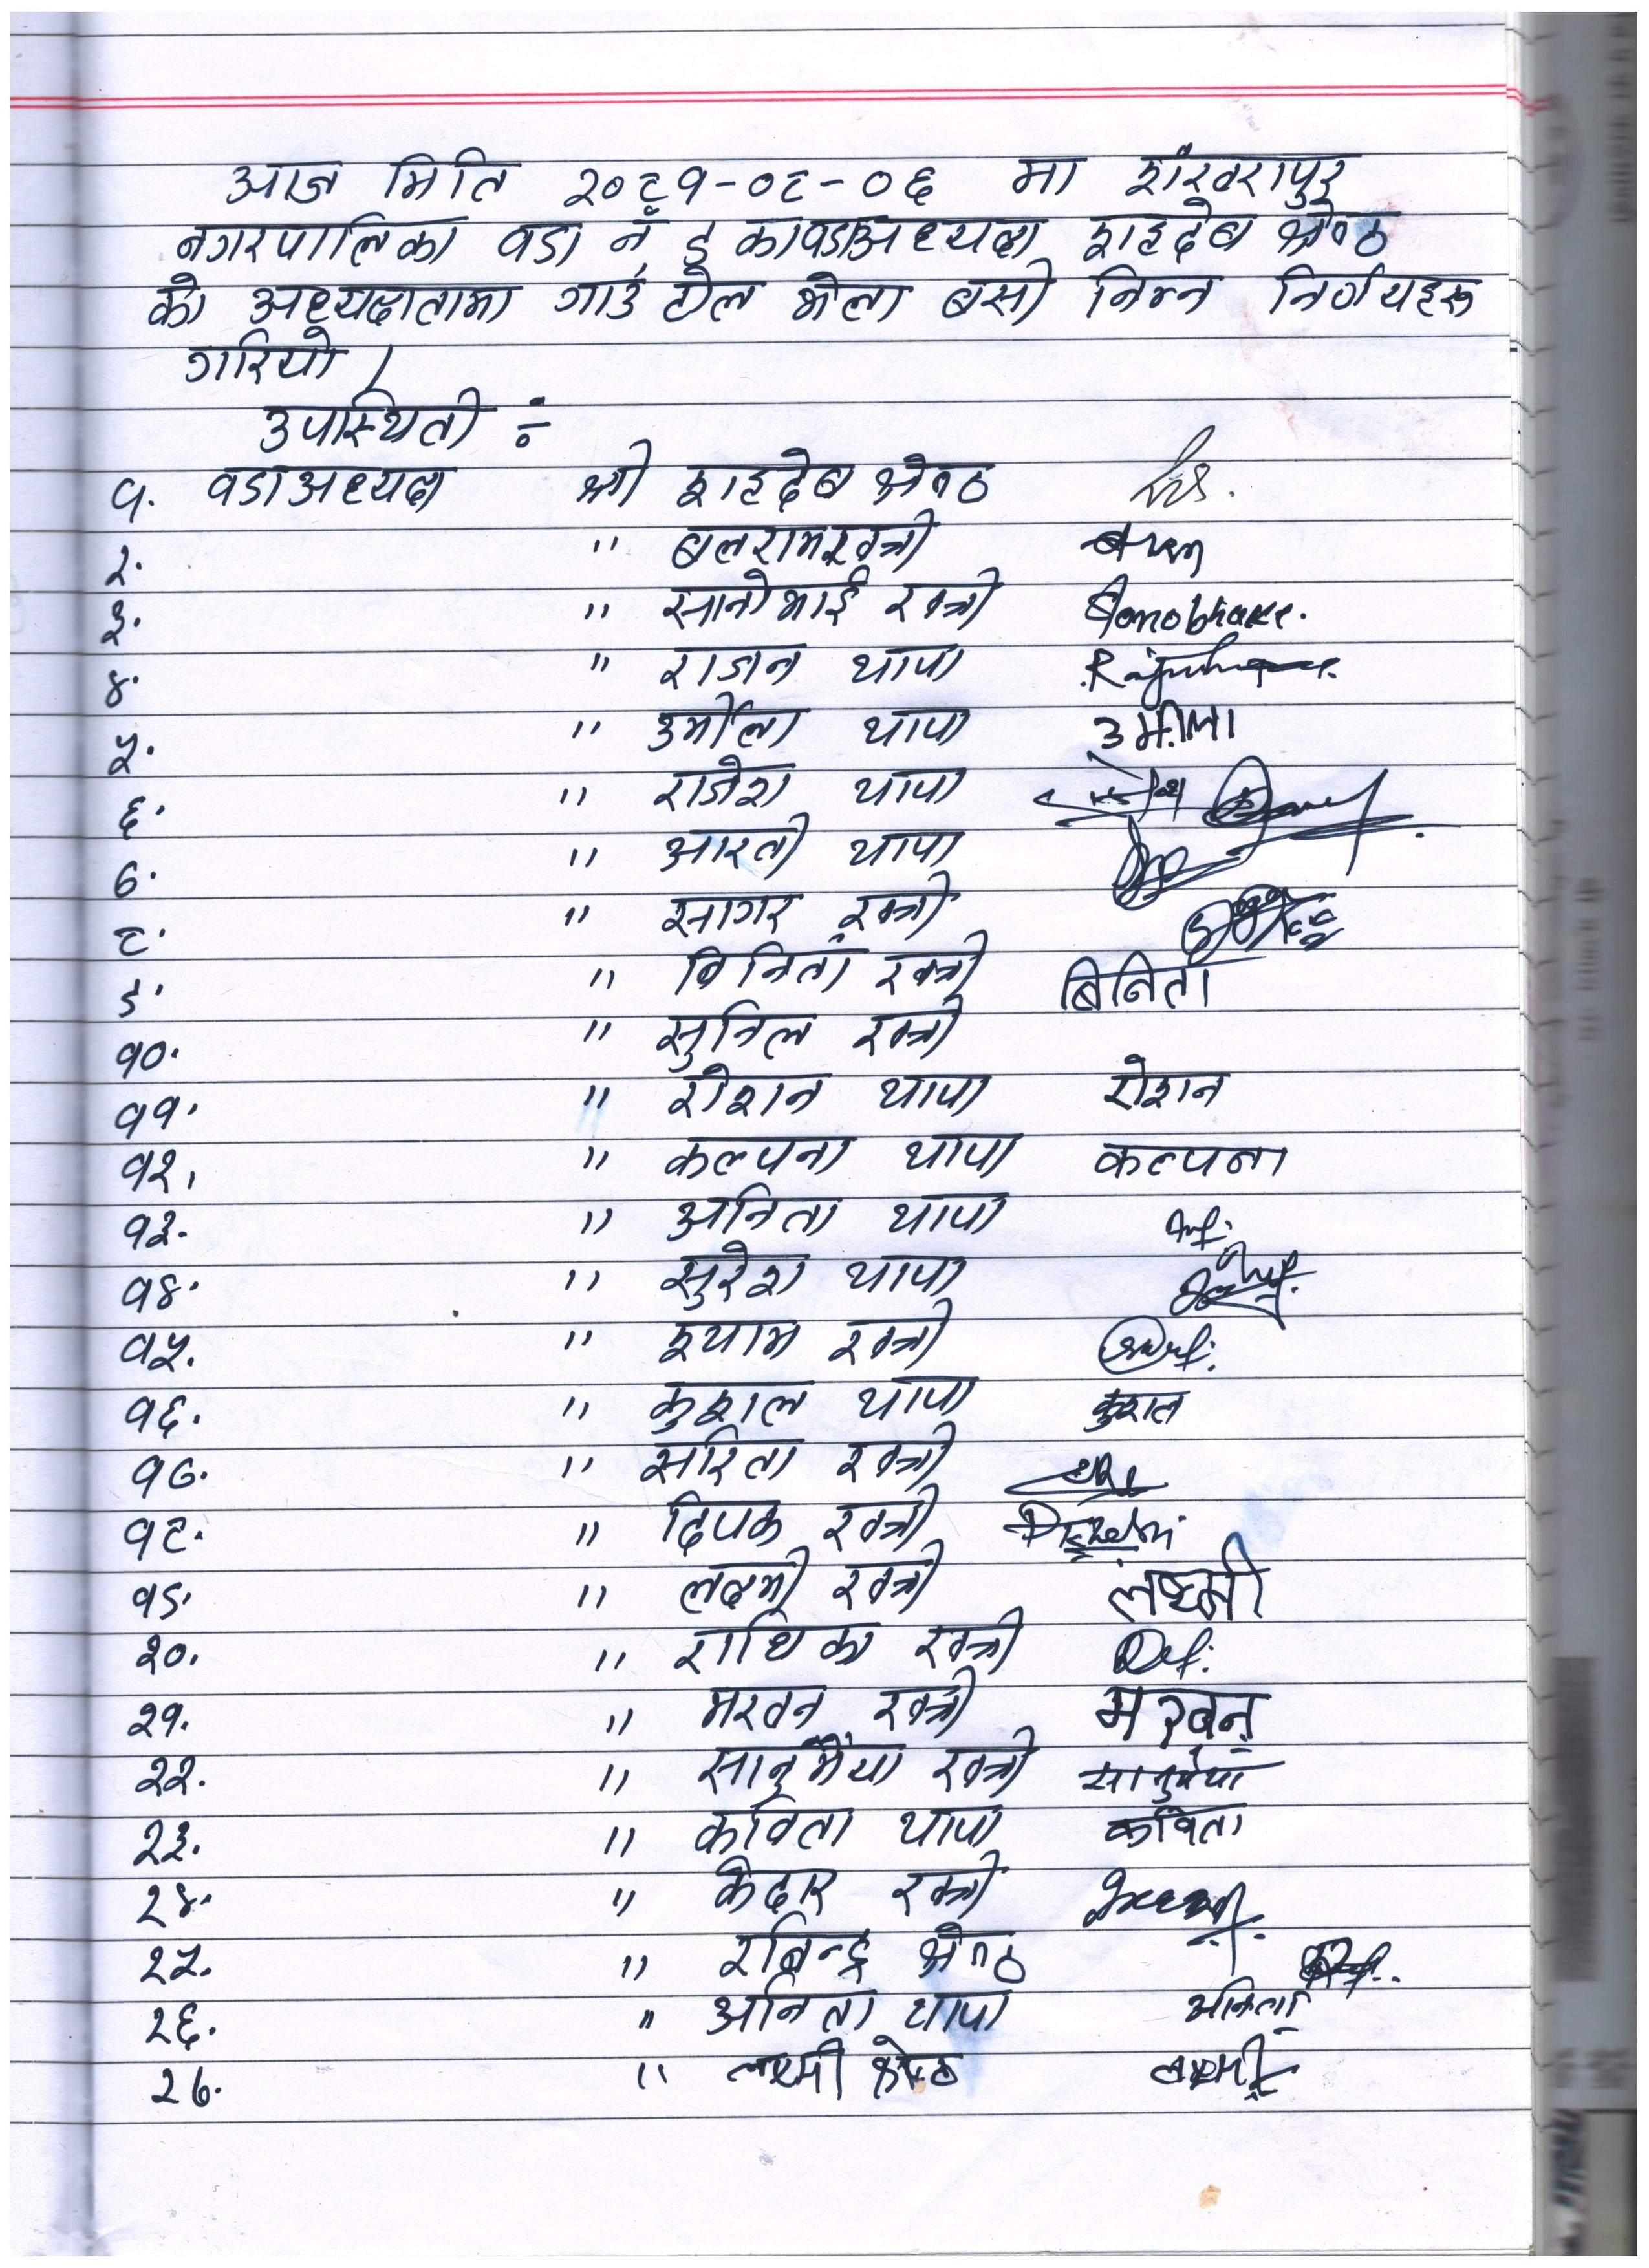 आज मिति २०८१-०८-०६ मा शंखरापुर
नगरपालिका वडा नँ ९ का वडाअध्यक्ष शहदेब श्रेष्ठ
को अध्यक्षतामा गाउँ टोल भेला बसी निम्न निर्णयहरू
गरियो ।
उपस्थिती :-
१. वडाअध्यक्ष श्री शहदेब श्रेष्ठ
२. " बलराम खत्री
३. " सानोभाई खत्री
४. " राजन थापा
५. " उर्मीला थापा उर्मीला
६. " राजेश थापा
७. " आरती थापा
८. " सागर खत्री
९. " विनिता खत्री बिनिता
१०. " सुनिल खत्री
११. " रोशन थापा रोशन
१२. " कल्पना थापा कल्पना
१३. " अनिता थापा
१४. " सुरेश थापा
१५. " श्याम खत्री
१६. " कुशल थापा कुशल
१७. " सरिता खत्री
१८. " दिपक खत्री
१९. " लक्ष्मी खत्री लक्ष्मी
२०. " राधिका खत्री
२१. " मखन खत्री मखन
२२. " सानुमैया खत्री सानुमैया
२३. " कविता थापा कविता
२४. " केदार खत्री
२५. " रबिन्द्र श्रेष्ठ
२६. " अनिता थापा अनिता
२७. " लक्ष्मी श्रेष्ठ लक्ष्मी